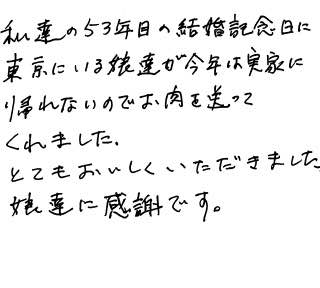 私達の53年目の結婚記念日に
東京にいる娘達が今年は実家に
帰れないのでお肉を送って
くれました.
とてもおいしくいただきました
娘達に感謝です。